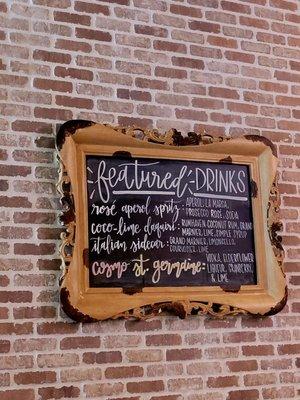 featured DRINKS
rosé aperol spritz: APEROL, LA MARCA PROSECCO ROSÉ, SODA
coco-lime daquiri: RUMHAVEN COCONUT RUM, LIME, SIMPLE SYRUP
italian sidecar: GRAND MARNIER, LIMONCELLO, COURVOISIER, LIME
cosmo st. germaine: VODKA, ELDERFLOWER LIQUEUR, CRANBERRY, & LIME